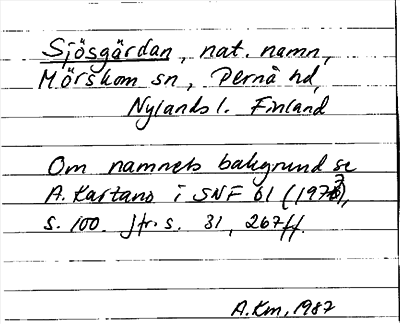 Sjösgärdan, nat. namn,
Mörskom sn, Pernå hd,
Nylands l. Finland
Om namnets bakgrund se
A. Kartano i SNF 61 (1973),
s. 100. Jfr. s. 31, 267ff.
A.Km, 1987